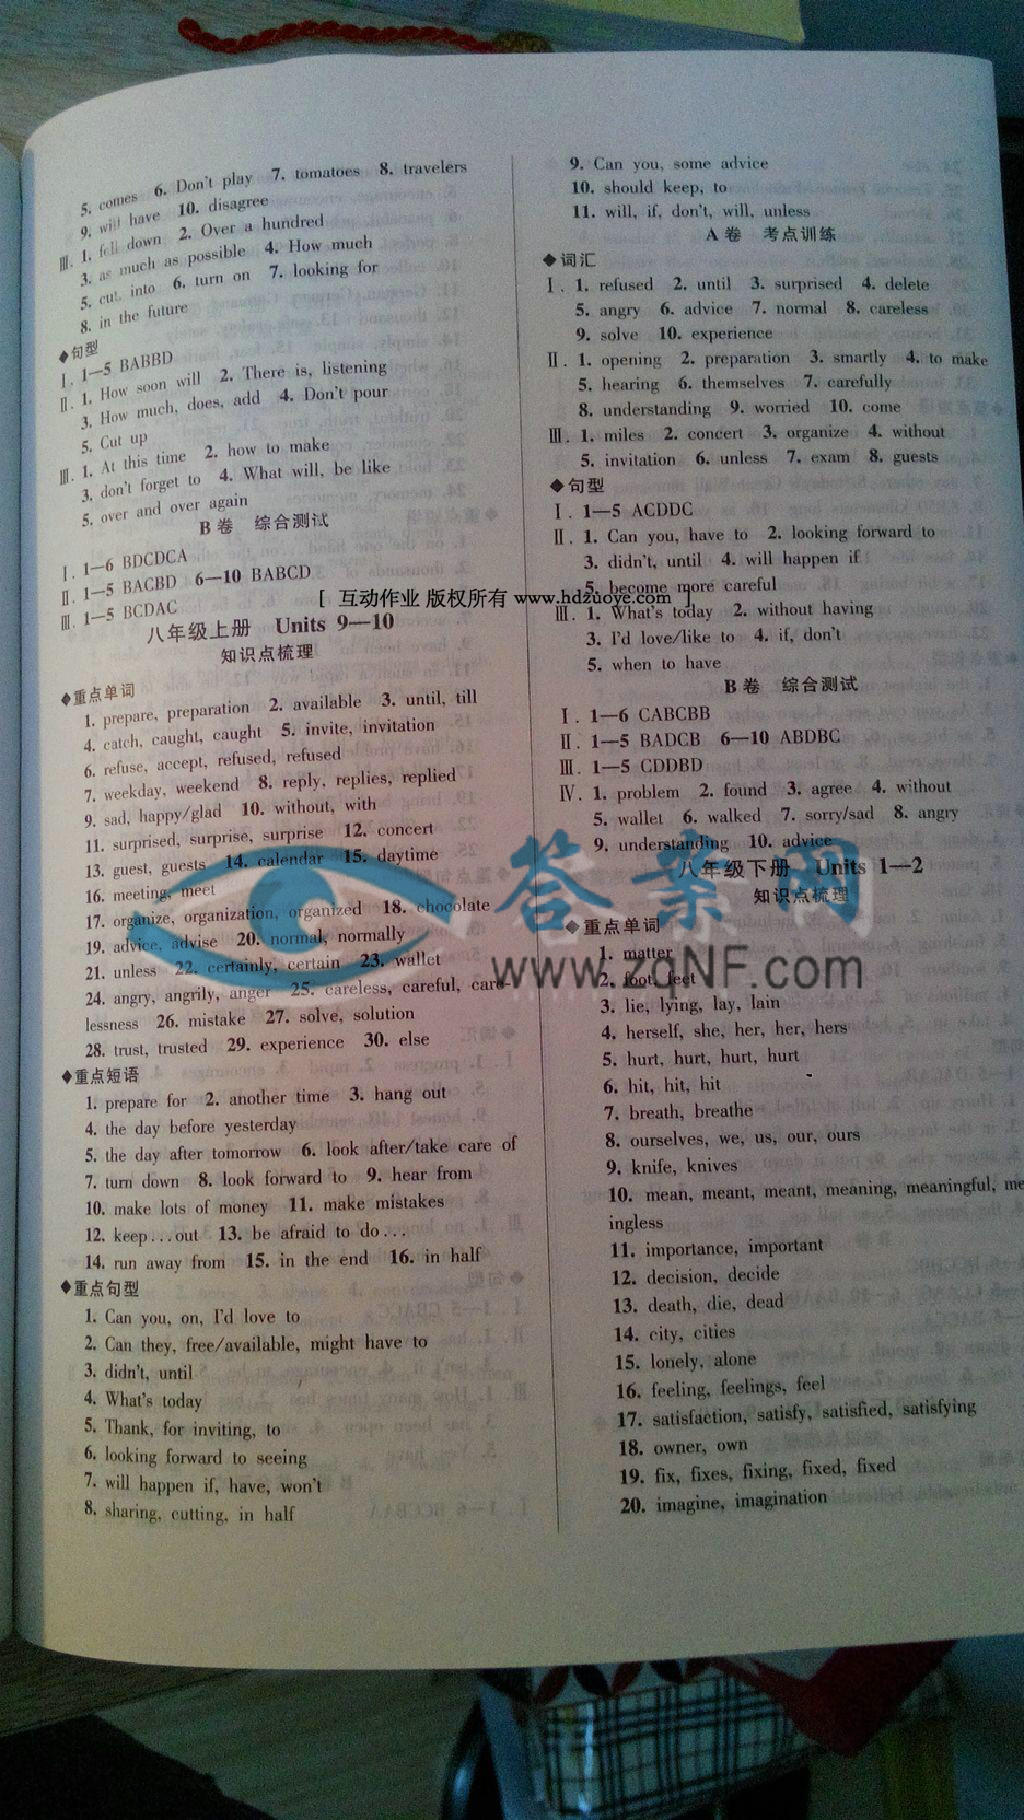 5. comes 6. Don't play 7. tomatoes 8. travelers
9. will have 10. disagree
Ⅲ. 1. fell down 2. Over a hundred
3. as much as possible 4. How much
5. cut, into 6. turn on 7. looking for
8. in the future
◆句型
Ⅰ. 1—5 BABBD
Ⅱ. 1. How soon will 2. There is, listening
3. How much, does, add 4. Don't pour
5. Cut up
Ⅲ. 1. At this time 2. how to make
3. don't forget to 4. What will, be like
5. over and over again
B卷 综合测试
Ⅰ. 1—6 BDCDCA
Ⅱ. 1—5 BACBD 6—10 BABCD
Ⅲ. 1—5 BCDAC
八年级上册 Units 9—10
知识点梳理
◆重点单词
1. prepare, preparation 2. available 3. until, till
4. catch, caught, caught 5. invite, invitation
6. refuse, accept, refused, refused
7. weekday, weekend 8. reply, replies, replied
9. sad, happy/glad 10. without, with
11. surprised, surprise, surprise 12. concert
13. guest, guests 14. calendar 15. daytime
16. meeting, meet
17. organize, organization, organized 18. chocolate
19. advice, advise 20. normal, normally
21. unless 22. certainly, certain 23. wallet
24. angry, angrily, anger 25. careless, careful, care-
lessness 26. mistake 27. solve, solution
28. trust, trusted 29. experience 30. else
◆重点短语
1. prepare for 2. another time 3. hang out
4. the day before yesterday
5. the day after tomorrow 6. look after/take care of
7. turn down 8. look forward to 9. hear from
10. make lots of money 11. make mistakes
12. keep…out 13. be afraid to do…
14. run away from 15. in the end 16. in half
◆重点句型
1. Can you, on, I'd love to
2. Can they, free/available, might have to
3. didn't, until
4. What's today
5. Thank, for inviting, to
6. looking forward to seeing
7. will happen if, have, won't
8. sharing, cutting, in half
9. Can you, some advice
10. should keep, to
11. will, if, don't, will, unless
A卷 考点训练
◆词汇
Ⅰ. 1. refused 2. until 3. surprised 4. delete
5. angry 6. advice 7. normal 8. careless
9. solve 10. experience
Ⅱ. 1. opening 2. preparation 3. smartly 4. to make
5. hearing 6. themselves 7. carefully
8. understanding 9. worried 10. come
Ⅲ. 1. miles 2. concert 3. organize 4. without
5. invitation 6. unless 7. exam 8. guests
◆句型
Ⅰ. 1—5 ACDDC
Ⅱ. 1. Can you, have to 2. looking forward to
3. didn't, until 4. will happen if
5. become more careful
Ⅲ. 1. What's today 2. without having
3. I'd love/like to 4. if, don't
5. when to have
B卷 综合测试
Ⅰ. 1—6 CABCBB
Ⅱ. 1—5 BADCB 6—10 ABDBC
Ⅲ. 1—5 CDDBD
Ⅳ. 1. problem 2. found 3. agree 4. without
5. wallet 6. walked 7. sorry/sad 8. angry
9. understanding 10. advice
八年级下册 Units 1—2
知识点梳理
◆重点单词
1. matter
2. foot, feet
3. lie, lying, lay, lain
4. herself, she, her, her, hers
5. hurt, hurt, hurt, hurt
6. hit, hit, hit
7. breath, breathe
8. ourselves, we, us, our, ours
9. knife, knives
10. mean, meant, meant, meaning, meaningful, me
ingless
11. importance, important
12. decision, decide
13. death, die, dead
14. city, cities
15. lonely, alone
16. feeling, feelings, feel
17. satisfaction, satisfy, satisfied, satisfying
18. owner, own
19. fix, fixes, fixing, fixed, fixed
20. imagine, imagination
[ 互动作业 版权所有 www.hdzuoye.com ]
答案网
www.zqNF.com